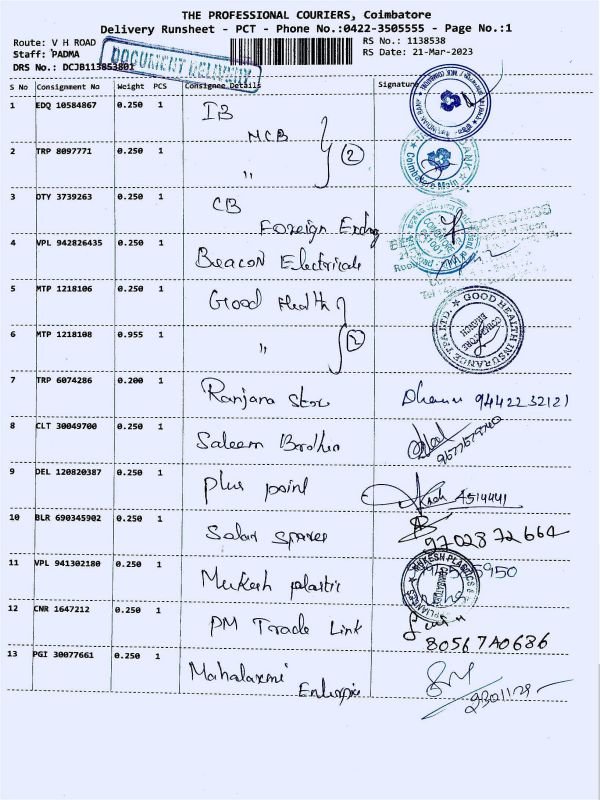 THE PROFESSIONAL COURIERS, Coimbatore
Delivery Runsheet - PCT - Phone No.:0422-3505555 - Page No.:1
Route: V H ROAD
RS No.: 1138538
Staff: PADMA
RS Date: 21-Mar-2023
DRS No.: DCJB113853801
DOCUMENT DELIVERY
S No Consignment No Weight PCS Consignee Details Signature
1 EDQ 10584867 0.250 1 IB
MCB
2 TRP 8097771 0.250 1 " 2
Coimbatore Main
3 OTY 3739263 0.250 1 CB
Foreign
4 VPL 942826435 0.250 1 Beacon Electricals
5 MTP 1218106 0.250 1 Good Health
6 MTP 1218108 0.955 1 " 2
GOOD HEALTH INSURANCE TPA LTD.
COIMBATORE BRANCH
7 TRP 6074286 0.200 1 Ranjana Store 9442232121
8 CLT 30049700 0.250 1 Saleem
9 DEL 120820387 0.250 1 plus point 4514441
10 BLR 690345902 0.250 1 Salar spares 9702872664
11 VPL 941302180 0.250 1 Mukesh plastic
12 CNR 1647212 0.250 1 PM Trade Link
13 PGI 30077661 0.250 1 Mahalaxmi